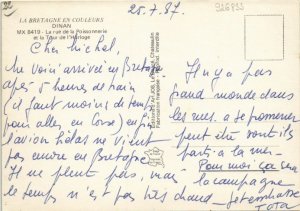 LA BRETAGNE EN COULEURS
DINAN
MX 8419 - La rue de la Poissonnerie
et la Tour de l'Horloge
25.7.87
926933
Cher Michel,
Me voici arrivée en Bretagne
après 5 heures de train
(il faut moins de temps
pour aller en Corse) en
l'avion hélas ne vient
pas encore en Bretagne
Il ne pleut pas, mais
le temps n'est pas très chaud
Il n'y a pas
grand monde dans
les rues. a se promener
peut être sont ils
partis à la mer.
Pour moi ça sera
la campagne
Je t'embrasse